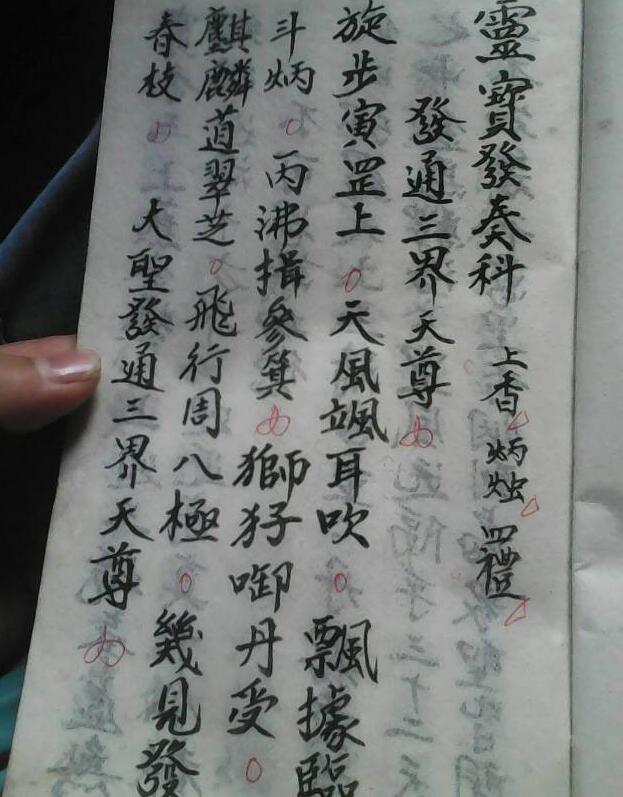 靈寶發奏科 上香 炳烛 四禮
發通三界天尊
旋步寅罡上 天風颯耳吹 飄據臨
斗炳 丙沸揖參箕 獅犼啣丹受
麒麟蓲翠芝 飛行周八極 幾見發
春枝 大聖發通三界天尊